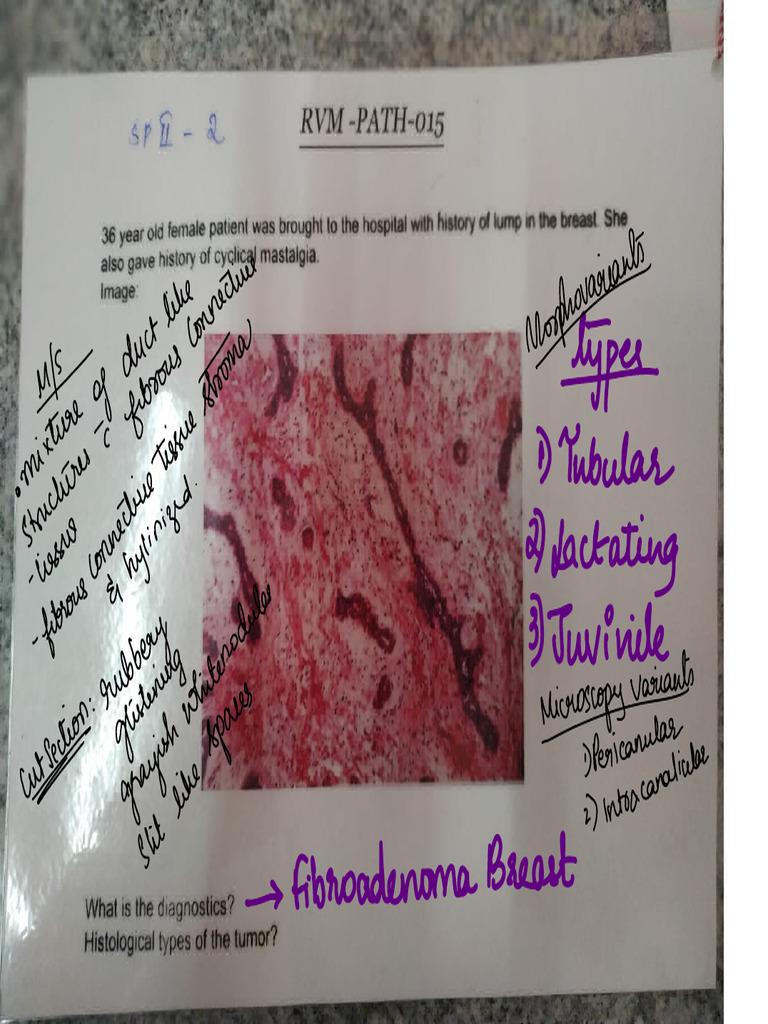 SP II - 2
RVM -PATH-015
36 year old female patient was brought to the hospital with history of lump in the breast. She
also gave history of cyclical mastalgia.
Image:
M/s
• Mixture of duct like
structures c̄ fibrous connective
- tissue
- fibrous connective tissue stroma
& hylinized.
Cut Section: rubbery
glistening
grayish white nodules
Slit like spaces
Morphovariants
types
1) Tubular
2) Lactating
3) Juvinile
Microscopy Variants
1) Pericanular
2) Intracanalicular
What is the diagnostics? → fibroadenoma Breast
Histological types of the tumor?